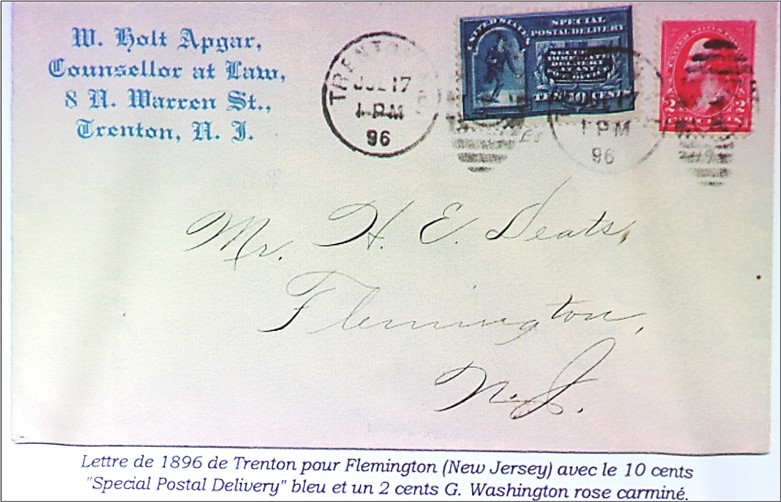 W. Holt Apgar,
Counsellor at Law,
8 N. Warren St.,
Trenton, N. J.
TRENTON
JUL 17
1 PM
96
UNITED STATES
SPECIAL
POSTAL DELIVERY
SECURES
IMMEDIATE
DELIVERY
AT ANY
POST OFFICE
TEN CENTS
17
1 PM
96
2 2
Mr. H. E. Deats,
Flemington,
N. J.
Lettre de 1896 de Trenton pour Flemington (New Jersey) avec le 10 cents
"Special Postal Delivery" bleu et un 2 cents G. Washington rose carminé.